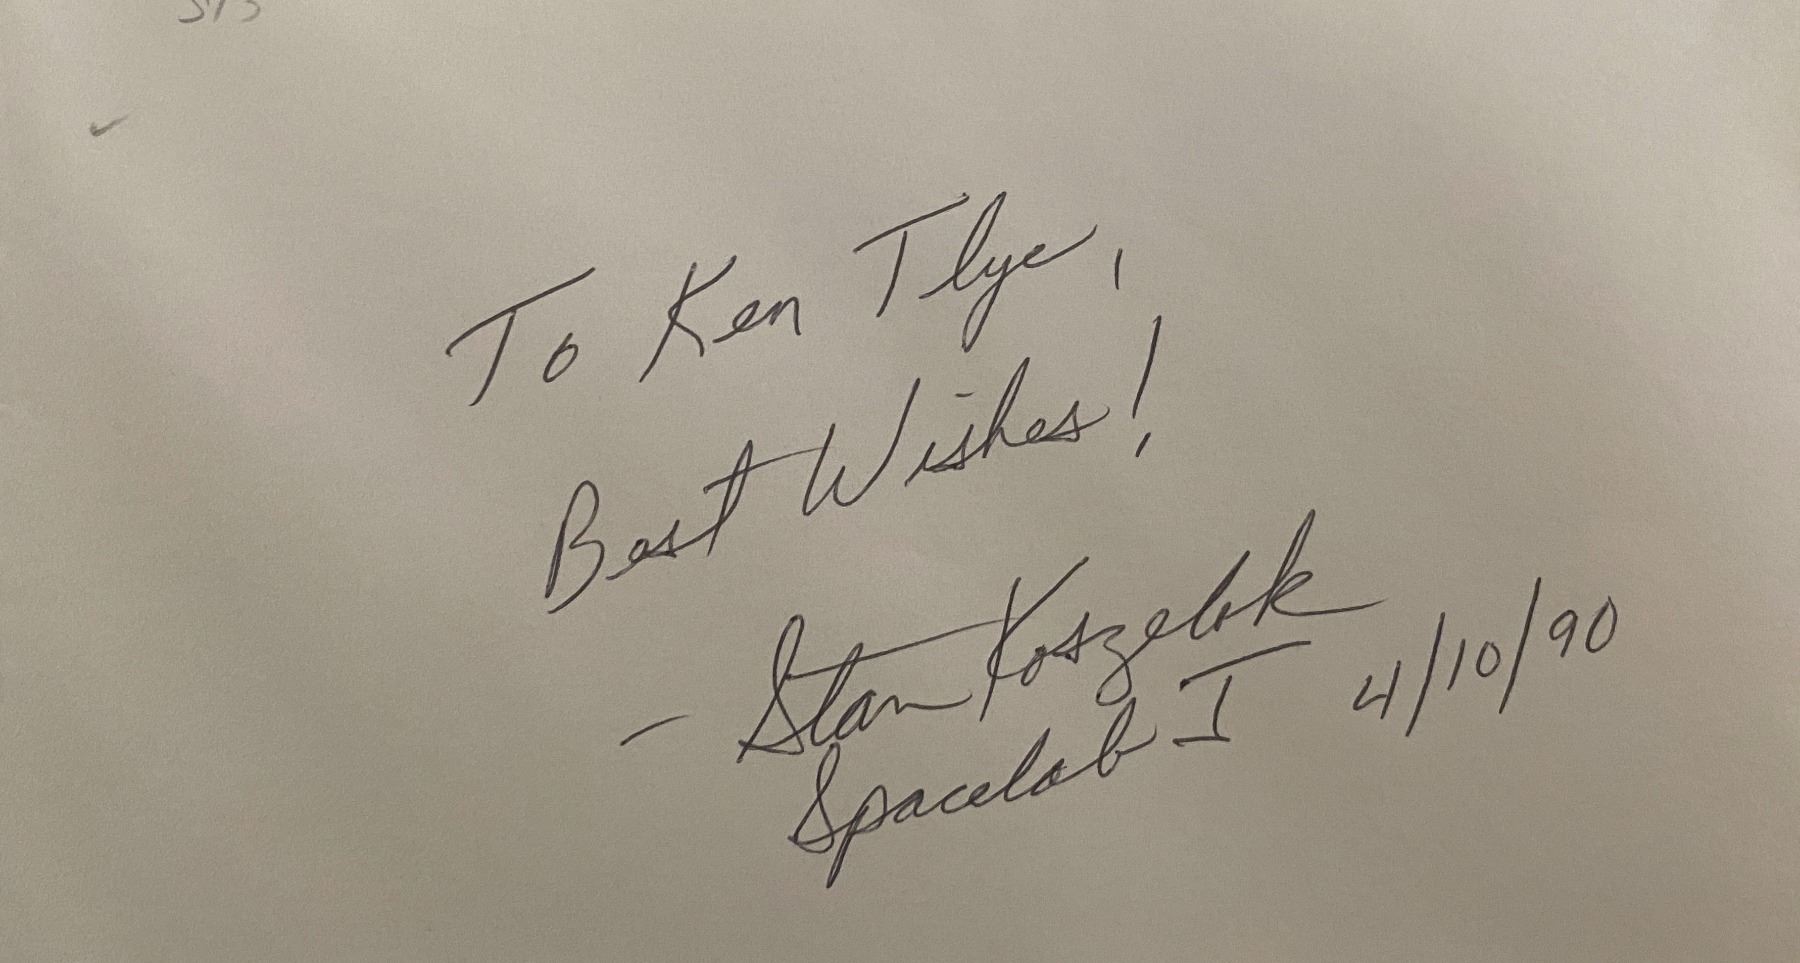 To Ken Tlye,
Best Wishes!
- Stan Koszelak
Spacelab I 4/10/90